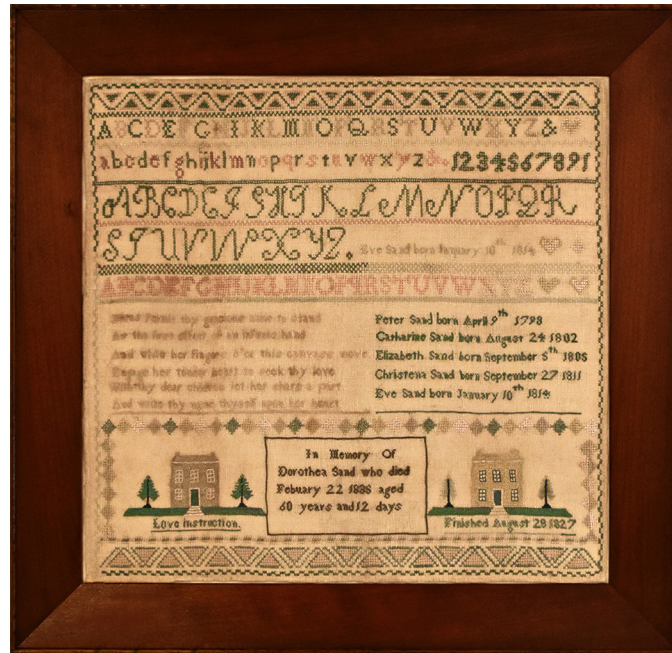 ABCDEFGHIJKLMNOPQRSTUVWXYZ&
abcdefghijklmnopqrstuvwxyz& 1234567891
ABCDEFGHI KLMNOPQR
STUVWXYZ. Eve Sand born January 10th 1814
ABCDEFGHIJKLMNOPQRSTUVWXYZ
thy gracious to
the first effort of an infants hand
And while her fingers o'er this canvass move
Engage her tender heart to seek thy love
With thy dear children let her share a part
And write thy name thyself upon her heart
Peter Sand born April 9th 1798
Catharine Sand born August 24 1802
Elizabeth Sand born September 5th 1808
Christena Sand born September 27 1811
Eve Sand born January 10th 1814
In Memory Of
Dorothea Sand who died
Febuary 22 aged
60 years and 12 days
Love instruction.
Finished August 28 1827